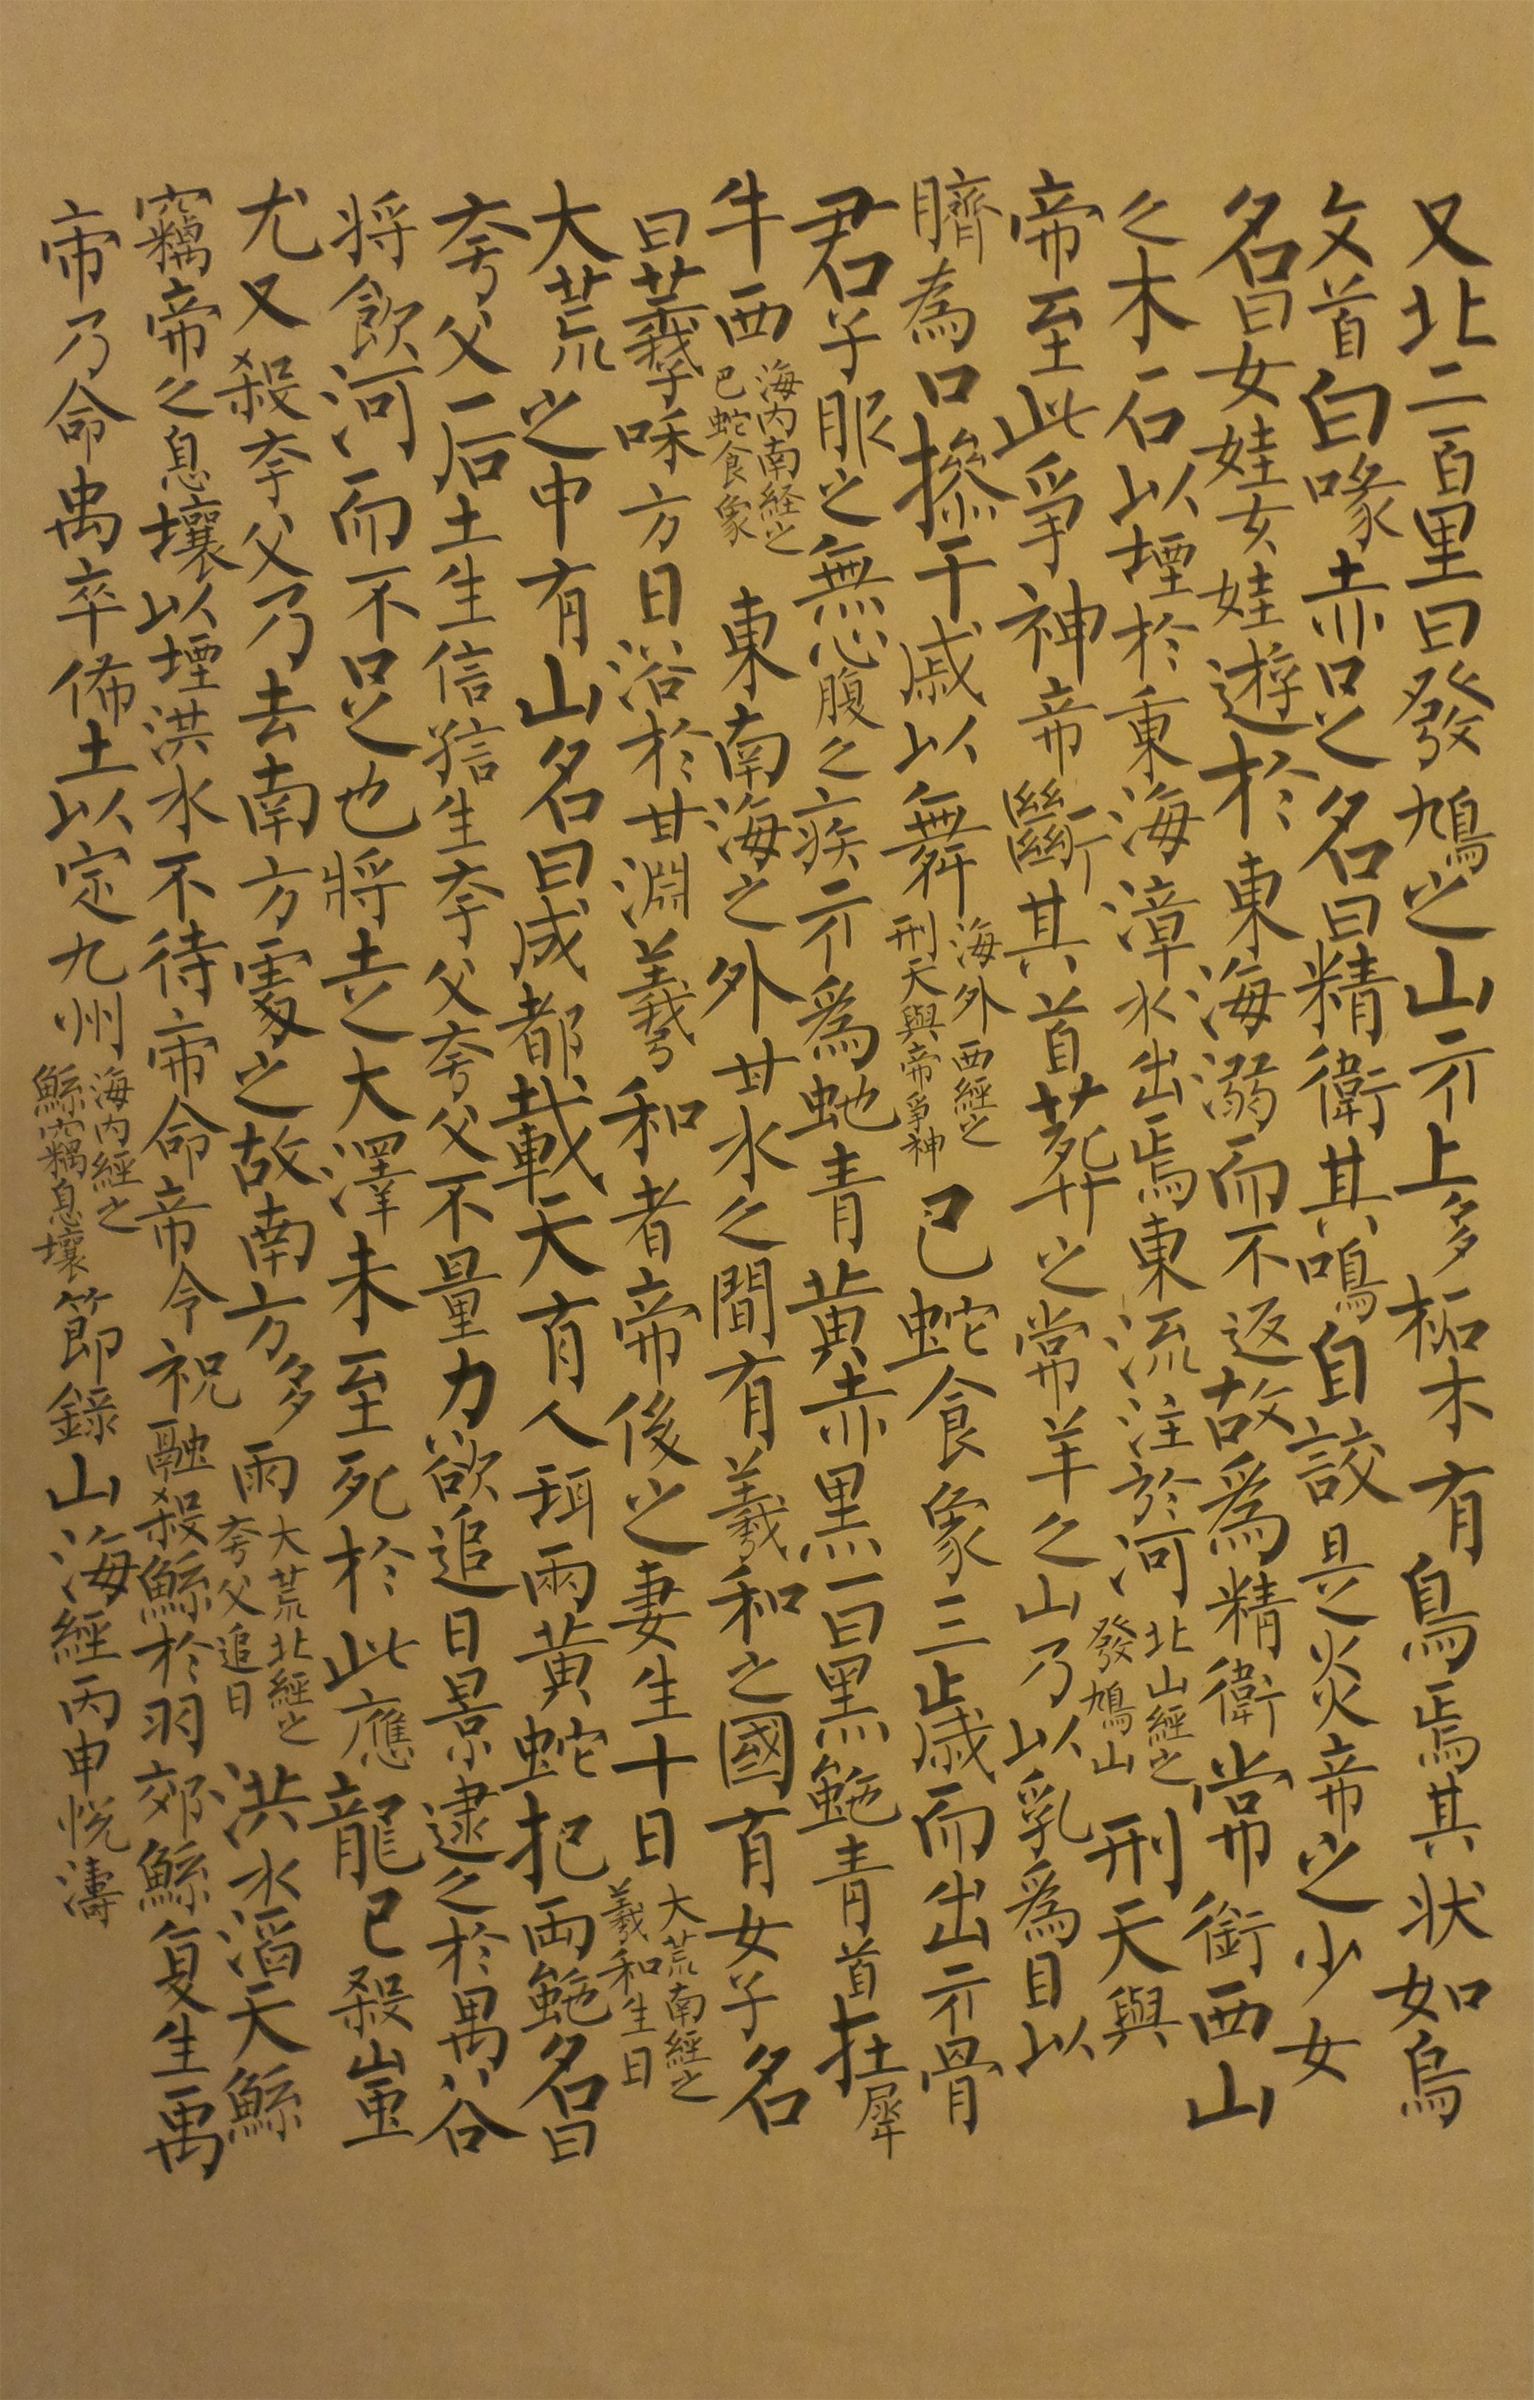 又北二百里曰發鳩之山亓上多柘木有鳥焉其狀如烏
文首白喙赤足名曰精衛其鳴自詨是炎帝之少女
名曰女娃女娃遊於東海溺而不返故為精衛常銜西山
之木石以堙於東海漳水出焉東流注於河 北山經之發鳩山 刑天與
帝至此爭神帝斷其首葬之常羊之山乃以乳為目以
臍為口操干戚以舞 海外西經之刑天與帝爭神 巴蛇食象三歲而出亓骨
君子服之無心腹之疾亓為虵青黃赤黑一曰黑虵青首在犀
牛西 海内南経之巴蛇食象 東南海之外甘水之間有羲和之國有女子名
曰羲和方日浴於甘淵羲和者帝俊之妻生十日 大荒南經之羲和生日
大荒之中有山名曰成都載天有人珥兩黃蛇把兩虵名曰
夸父后土生信信生夸父夸父不量力欲追日景逮之於禺谷
将飲河而不足也將走大澤未至死於此應龍已殺蚩
尤又殺夸父乃去南方處之故南方多雨 大荒北經之夸父追日 洪水滔天鯀
竊帝之息壤以堙洪水不待帝命帝令祝融殺鯀於羽郊鯀复生禹
帝乃命禹卒佈土以定九州 海内經之鯀竊息壤 節錄山海經丙申悦濤